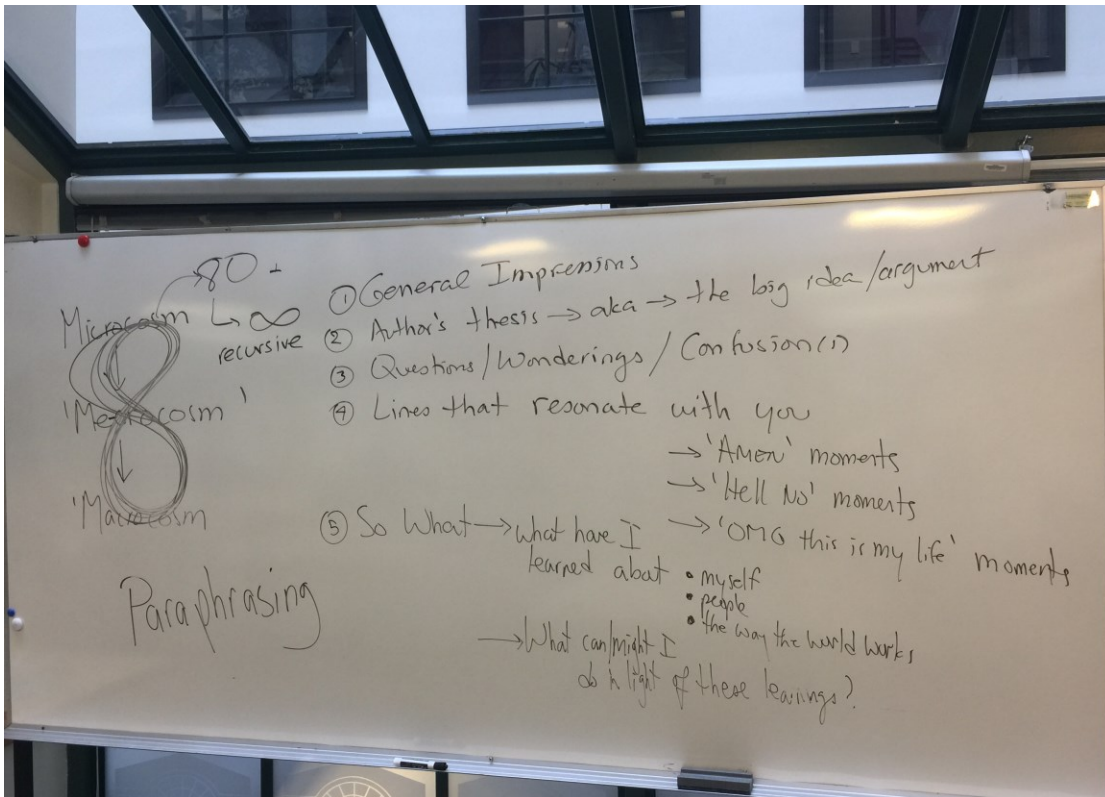 80
Microcosm ↳ ∞
recursive
'Mesocosm'
'Macrocosm
Paraphrasing
① General Impressions
② Author's thesis → aka → the big idea/argument
③ Questions/Wonderings/Confusion(s)
④ Lines that resonate with you
→ 'AMEN' moments
→ 'Hell No' moments
→ 'OMG this is my life' moments
⑤ So What → what have I
learned about • myself
• people
• the way the world works
→ What can/might I
do in light of these learnings?